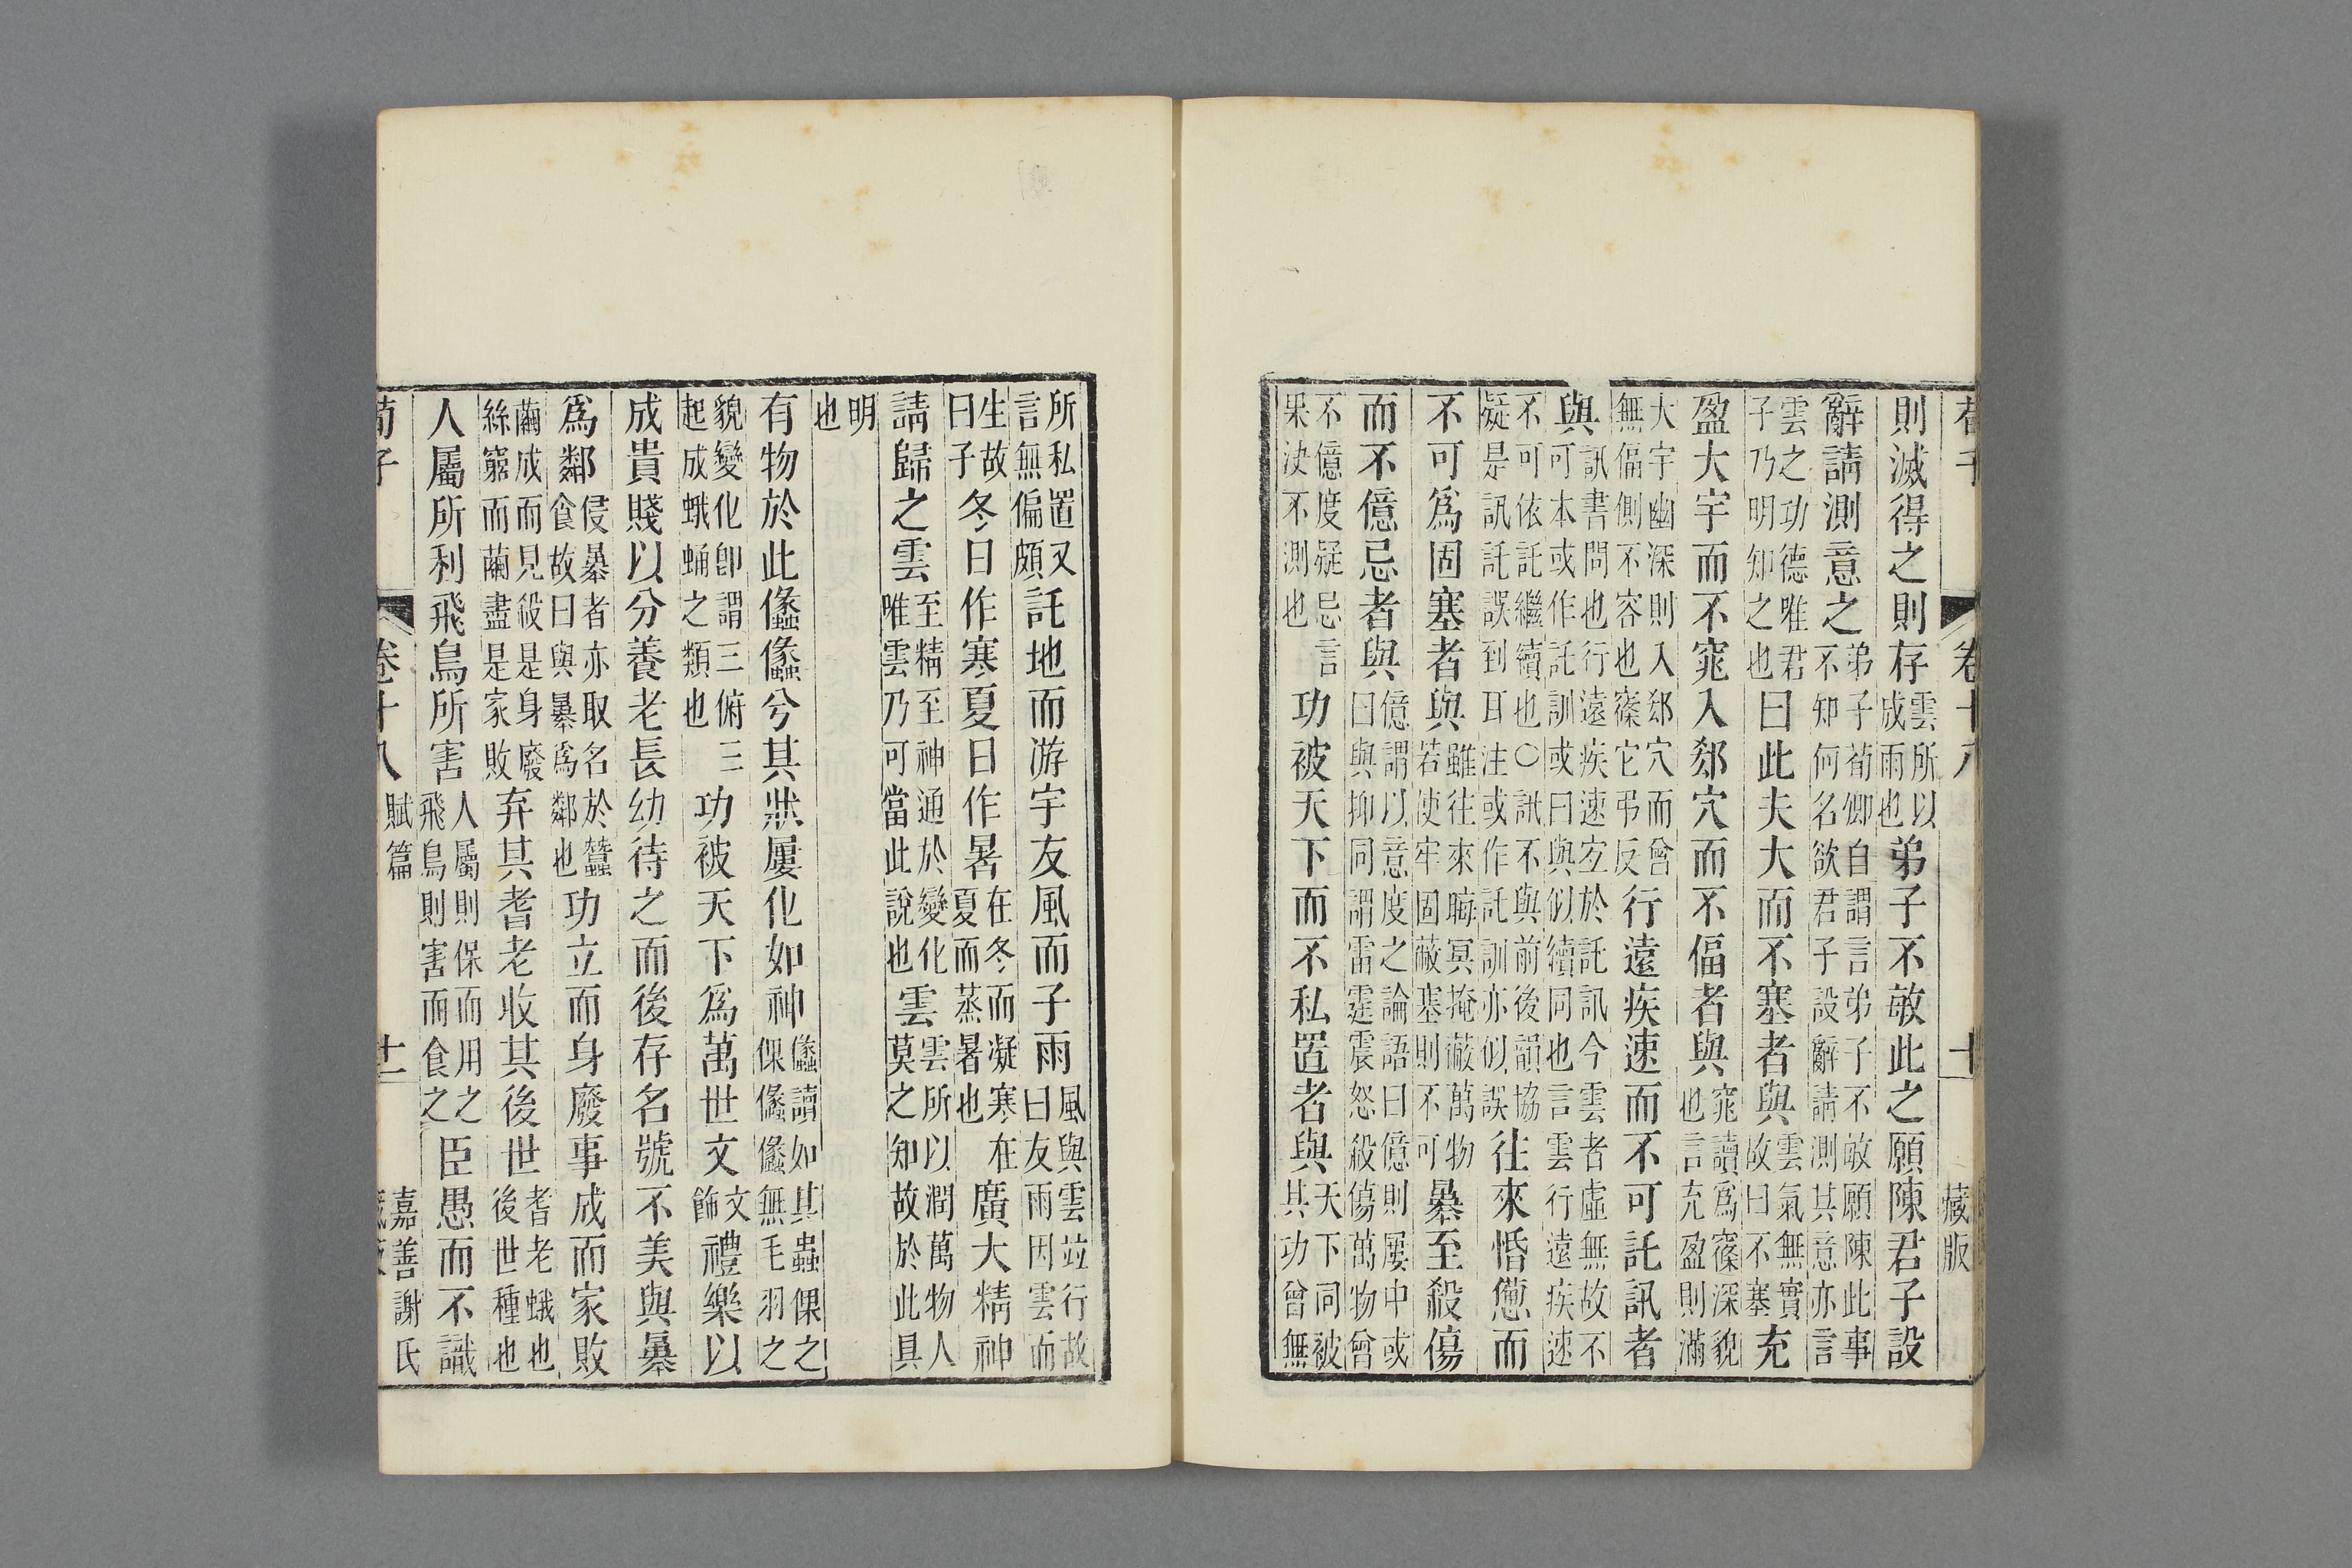 荀子 卷十八 十 藏版
則滅得之則存雲所以成雨也弟子不敏此之願陳君子設
辭請測意之弟子荀卿自謂言弟子不敏願陳此事不知何名欲君子設辭請測其意亦言
雲之功德唯君子乃明知之也曰此夫大而不塞者與雲氣無實故曰不塞充
盈大宇而不窕入郄穴而不偪者與窕讀爲篠深貌也言充盈則滿
大宇幽深則入郄穴而曾無偪側不容也篠它弔反行遠疾速而不可託訊者
與訊書問也行遠疾速宐於託訊今雲者虛無故不可本或作託訓或曰與似續同也言雲行遠疾速
不可依託繼續也〇訊不與前後韻協疑是訊託誤到耳注或作託訓亦似誤往來惛憊而
不可爲固塞者與雖往來晦冥掩蔽萬物若使牢固蔽塞則不可暴至殺傷
而不億忌者與億謂以意度之論語曰億則屢中或曰與抑同謂雷霆震怒殺傷萬物曾
不億度疑忌言果決不測也功被天下而不私置者與天下同被其功曾無
所私置又言無偏頗託地而游宇友風而子雨風與雲竝行故曰友雨因雲而
生故曰子冬日作寒夏日作暑在冬而凝寒在夏而蒸暑也廣大精神
請歸之雲至精至神通於變化唯雲乃可當此說也雲雲所以潤萬物人莫之知故於此具
明也
有物於此㒩㒩兮其狀屢化如神㒩讀如其蟲倮之倮㒩㒩無毛羽之
貌變化卽謂三俯三起成蛾蛹之類也功被天下爲萬世文文飾禮樂以
成貴賤以分養老長幼待之而後存名號不美與暴
爲鄰侵暴者亦取名於蠶食故曰與暴爲鄰也功立而身廢事成而家敗
繭成而見殺是身廢絲窮而繭盡是家敗弃其耆老收其後世耆老蛾也後世種也
人屬所利飛鳥所害人屬則保而用之飛鳥則害而食之臣愚而不識
荀子 卷十八 賦篇 十一 嘉善謝氏藏版